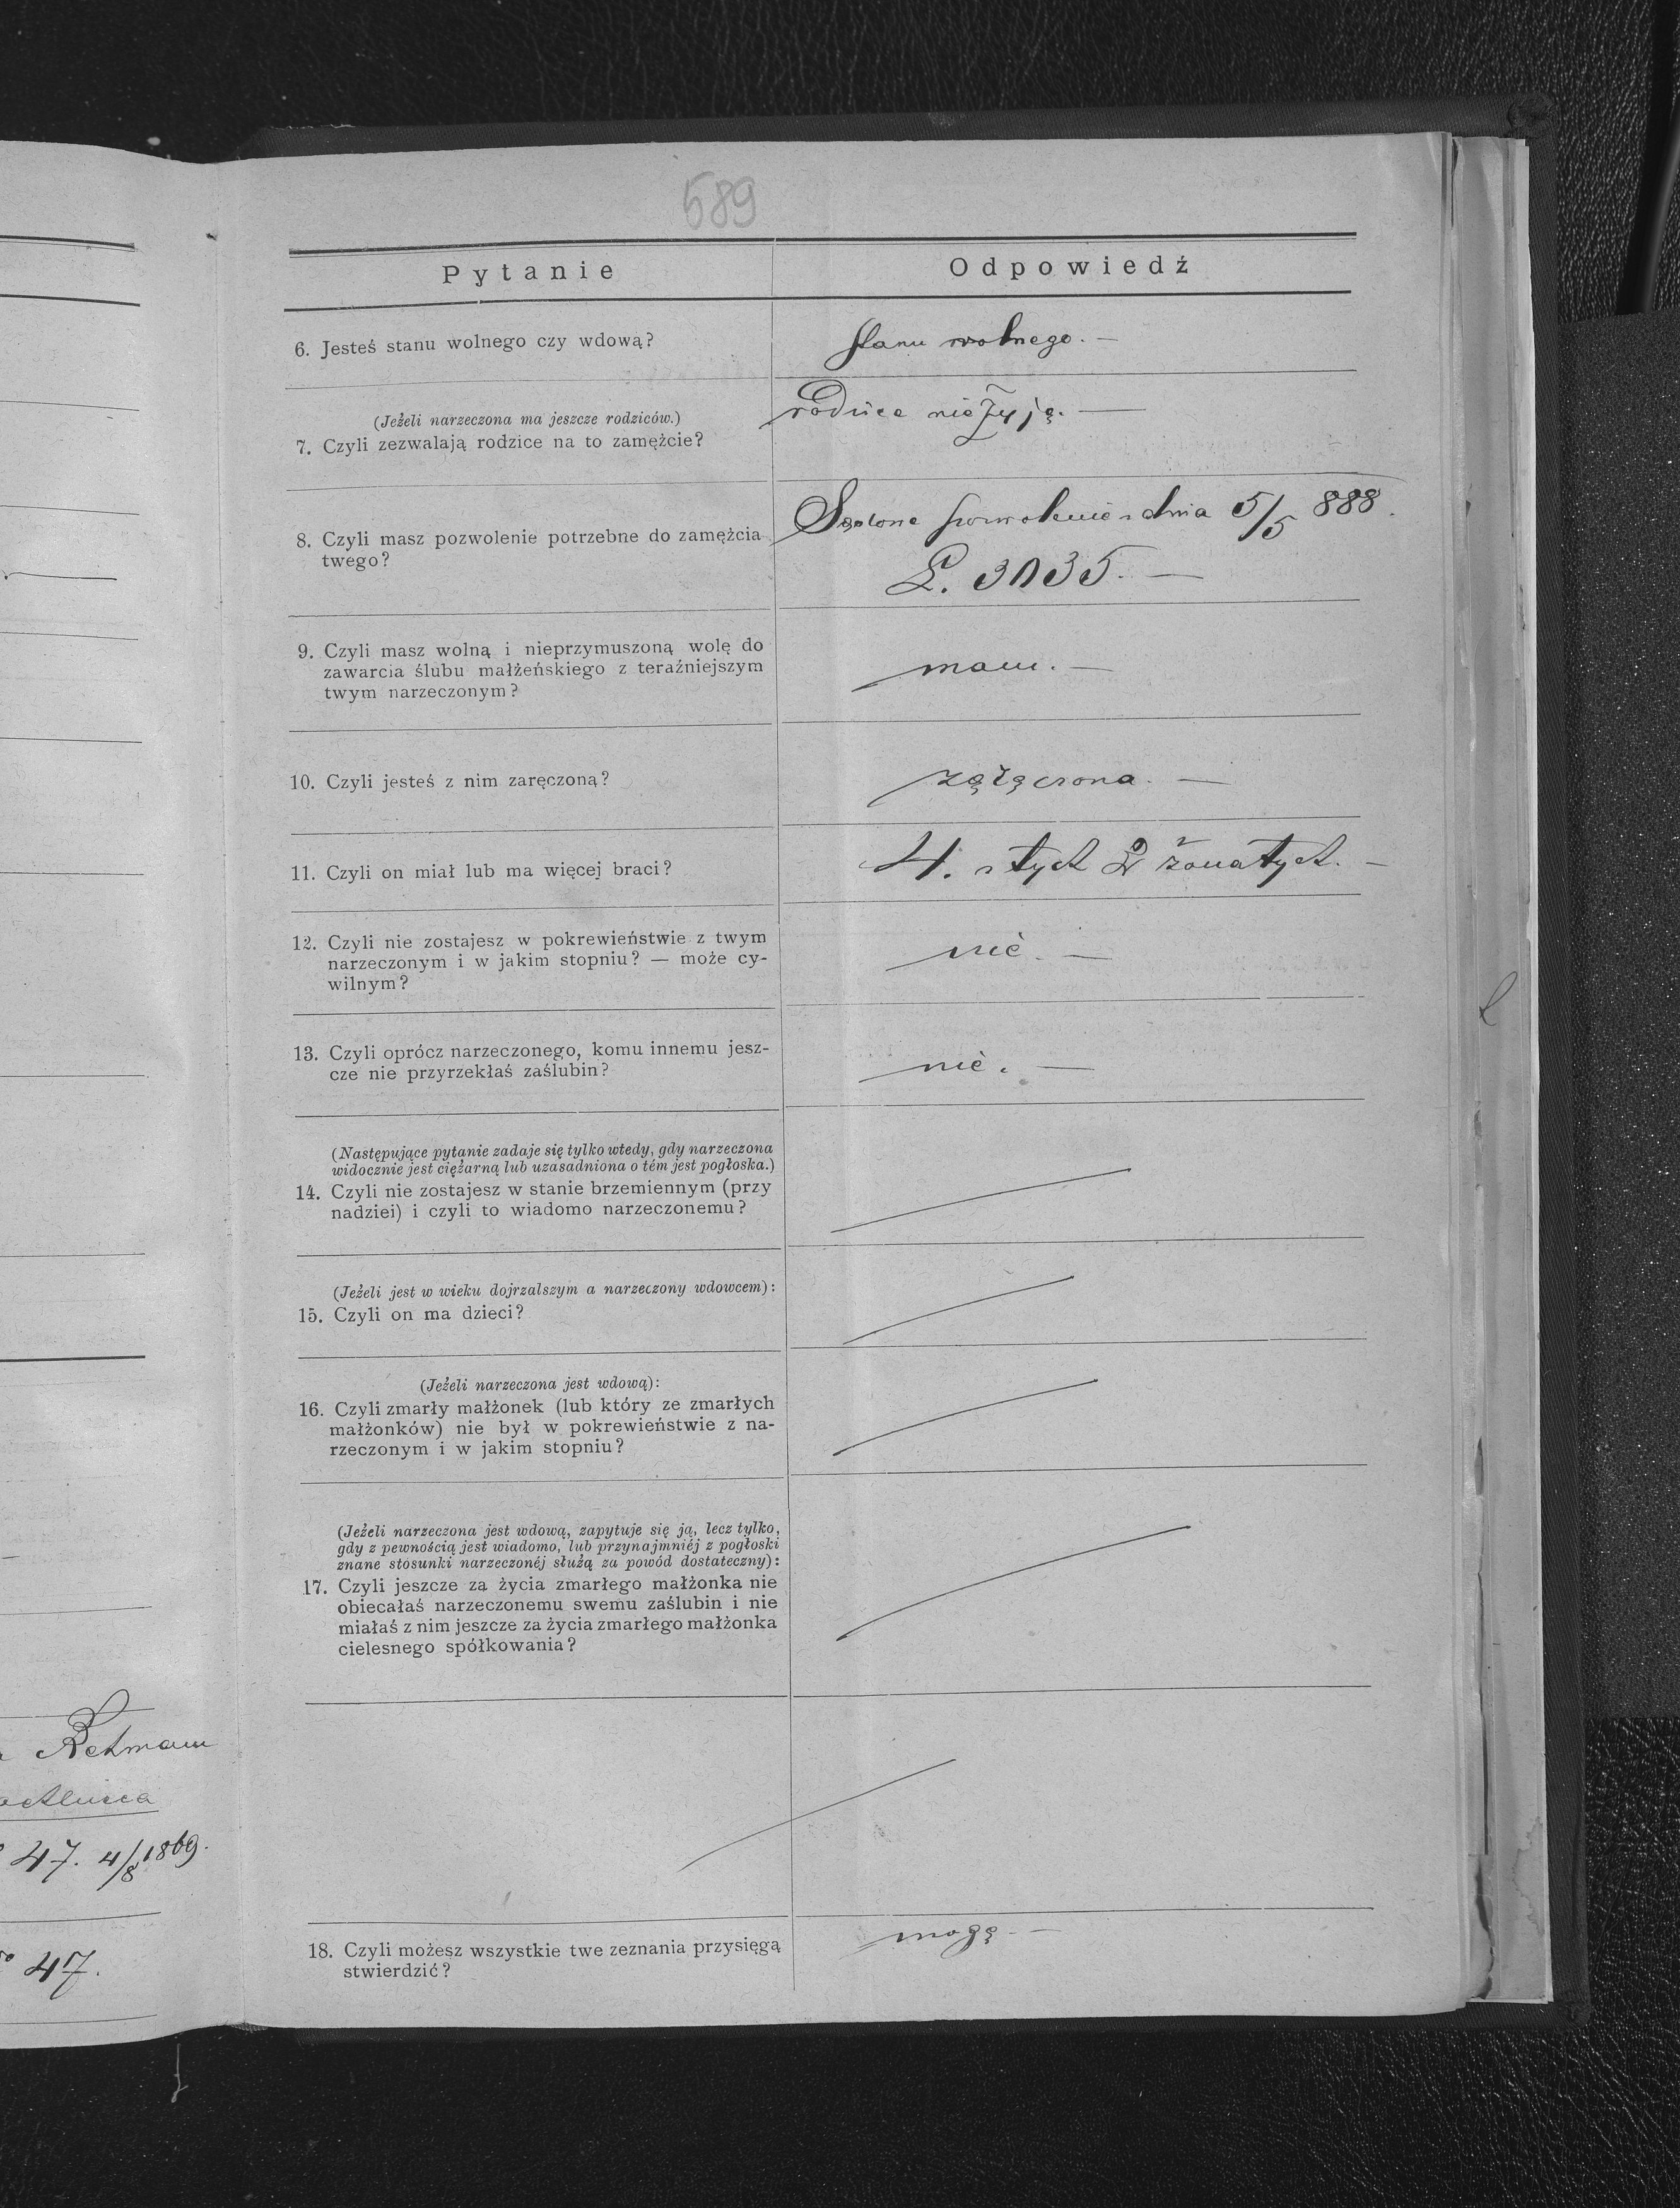 589
Pytanie
Odpowiedź
6. Jesteś stanu wolnego czy wdową?
stanu wolnego. —
(Jeżeli narzeczona ma jeszcze rodziców.)
7. Czyli zezwalają rodzice na to zamężcie?
rodzice nie żyją. —
8. Czyli masz pozwolenie potrzebne do zamężcia
twego?
dnia 5/5 888.
L. 3135. —
9. Czyli masz wolną i nieprzymuszoną wolę do
zawarcia ślubu małżeńskiego z teraźniejszym
twym narzeczonym?
mam. —
10. Czyli jesteś z nim zaręczoną?
11. Czyli on miał lub ma więcej braci?
4. z tych 2 żonatych. —
12. Czyli nie zostajesz w pokrewieństwie z twym
narzeczonym i w jakim stopniu? — może cy-
wilnym?
nié. —
13. Czyli oprócz narzeczonego, komu innemu jesz-
cze nie przyrzekłaś zaślubin?
nié. —
(Następujące pytanie zadaje się tylko wtedy, gdy narzeczona
widocznie jest ciężarną lub uzasadniona o tém jest pogłoska.)
14. Czyli nie zostajesz w stanie brzemiennym (przy
nadziei) i czyli to wiadomo narzeczonemu?
(Jeżeli jest w wieku dojrzalszym a narzeczony wdowcem):
15. Czyli on ma dzieci?
(Jeżeli narzeczona jest wdową):
16. Czyli zmarły małżonek (lub który ze zmarłych
małżonków) nie był w pokrewieństwie z na-
rzeczonym i w jakim stopniu?
(Jeżeli narzeczona jest wdową, zapytuje się ją, lecz tylko,
gdy z pewnością jest wiadomo, lub przynajmniéj z pogłoski
znane stosunki narzeczonéj służą za powód dostateczny):
17. Czyli jeszcze za życia zmarłego małżonka nie
obiecałaś narzeczonemu swemu zaślubin i nie
miałaś z nim jeszcze za życia zmarłego małżonka
cielesnego spółkowania?
18. Czyli możesz wszystkie twe zeznania przysięgą
stwierdzić?
mogę —
47. 4/8 1869.
47.